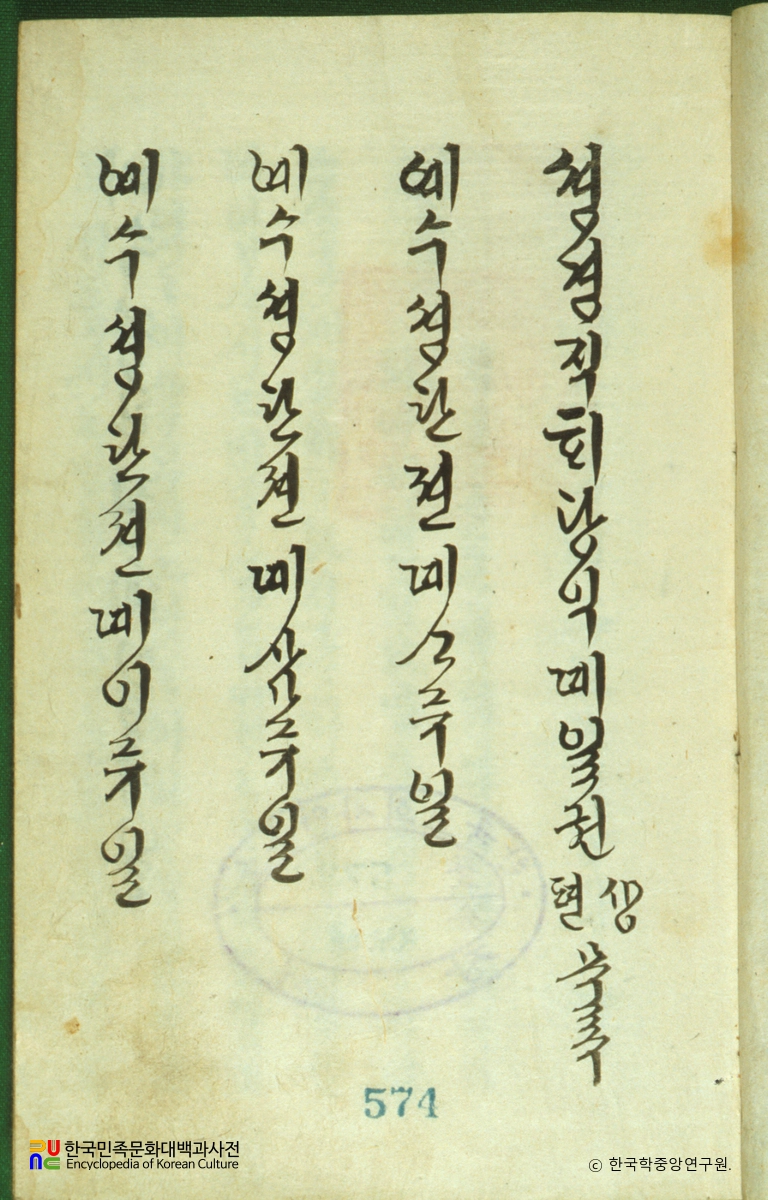 셩경직ᄒᆡ광익뎨일권 샹편 목록
예수셩탄젼뎨ᄉᆞ쥬일
예수셩탄젼뎨삼쥬일
예수셩탄젼뎨이쥬일
574
한국민족문화대백과사전
Encyclopedia of Korean Culture
© 한국학중앙연구원.